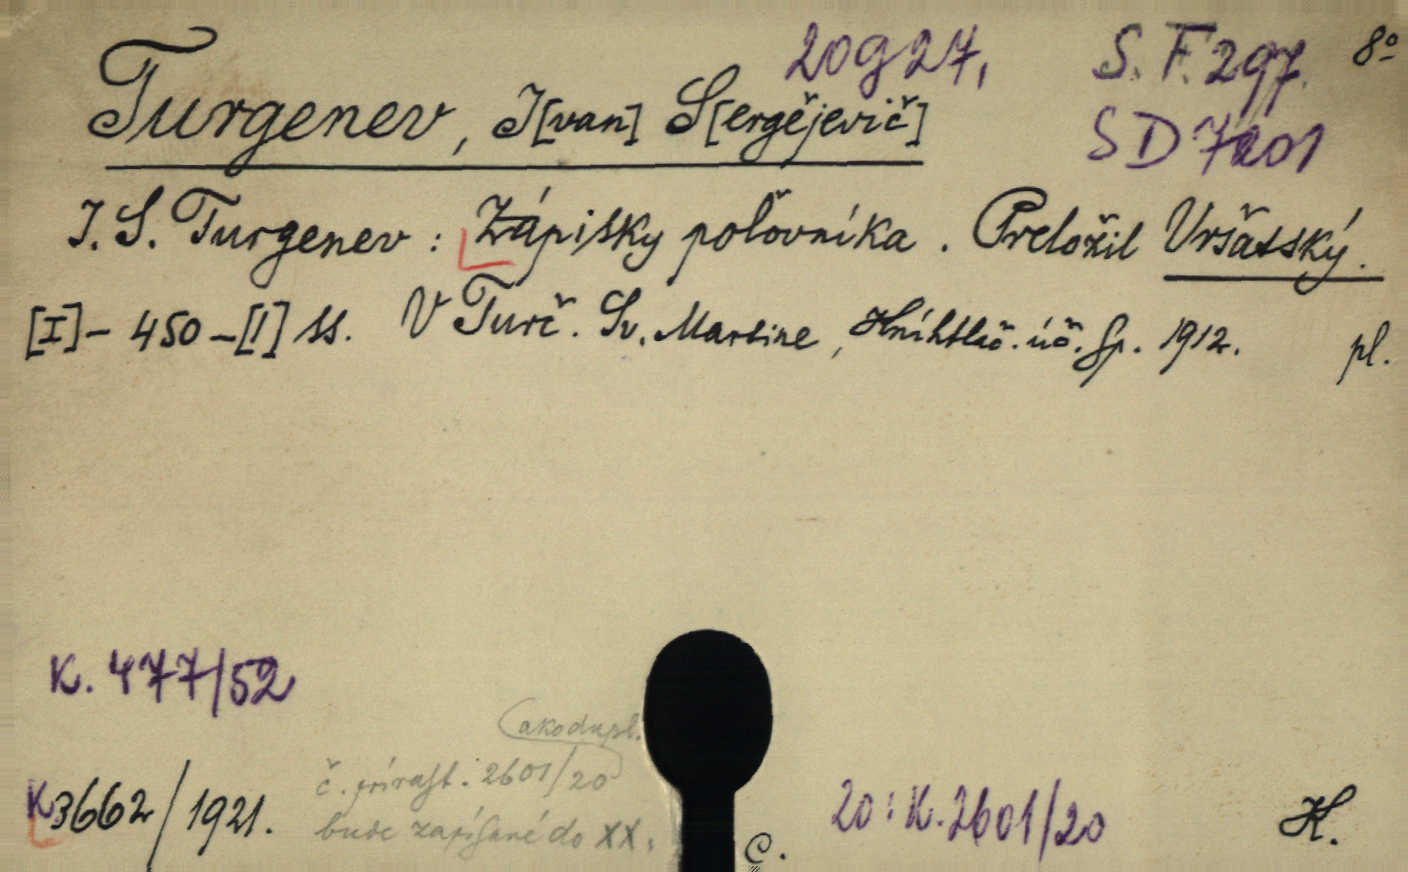 20 g 27, S. F. 297. 8º
Turgenev, I[van] S[ergějevič]
SD 7201
I. S. Turgenev: Zápisky poľovníka. Preložil Vršatský.
[I]- 450 -[I] ss. V Turč. Sv. Martine, Kníhtlač. úč. sp. 1912. pl.
K. 477/52
(ako dupl.
č. prírast. 2601/20)
K 3662/1921.
bude zapísané do XX.
C.
20: K. 2601/20
K.